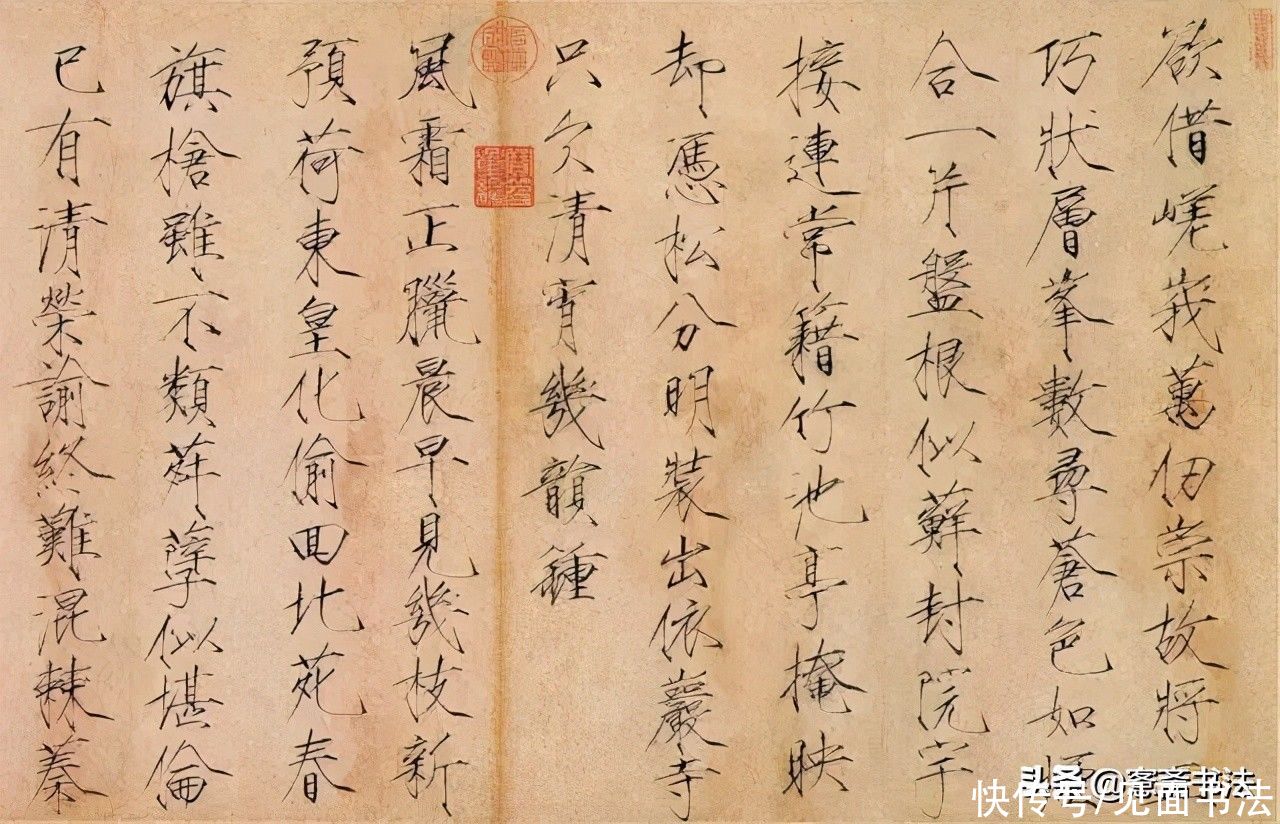 欲借嵯峩萬仞崇故將
巧狀層峯數尋蒼色如
合一片盤根似蘚封院宇
接連常籍竹池亭掩映
却憑松分明裝出依巖寺
只欠清宵幾韻鍾
風霜正臘晨早見幾枝新
預荷東皇化偷回北苑春
旗槍雖不類荈孽似堪倫
已有清榮諭終難混棘蓁
头条@斋书法
快传号/见面书法